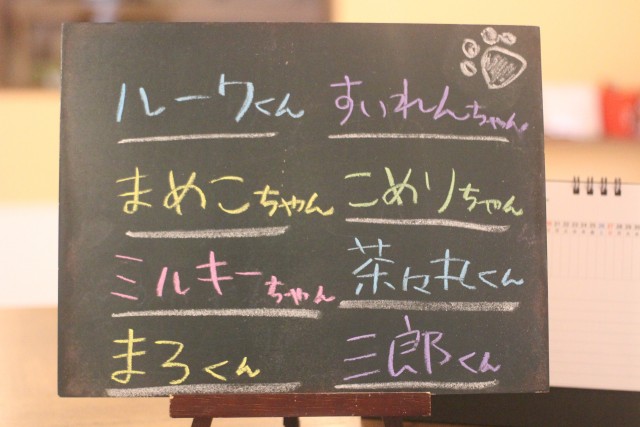 ルークくん
すいれんちゃん
まめこちゃん
こめりちゃん
ミルキーちゃん
茶々丸くん
まろくん
三郎くん